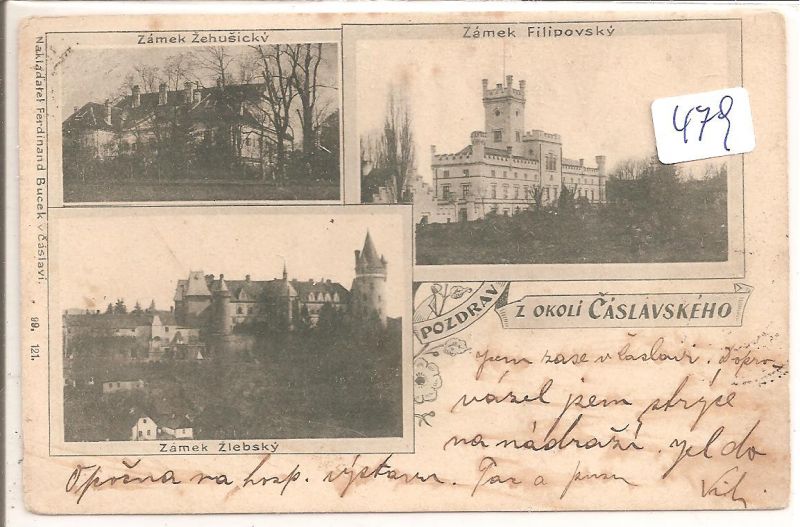 Zámek Žehušický
Zámek Filipovský
479
Nakladatel Ferdinand Bucek v Čáslavi. 99. 121.
POZDRAV
Z OKOLÍ ČÁSLAVSKÉHO
Zámek Žlebský
jsem zase v Čáslavi. Dopro-
vázel jsem strýce
na nádraží. jel do
Opočna na hosp. výstavu. a